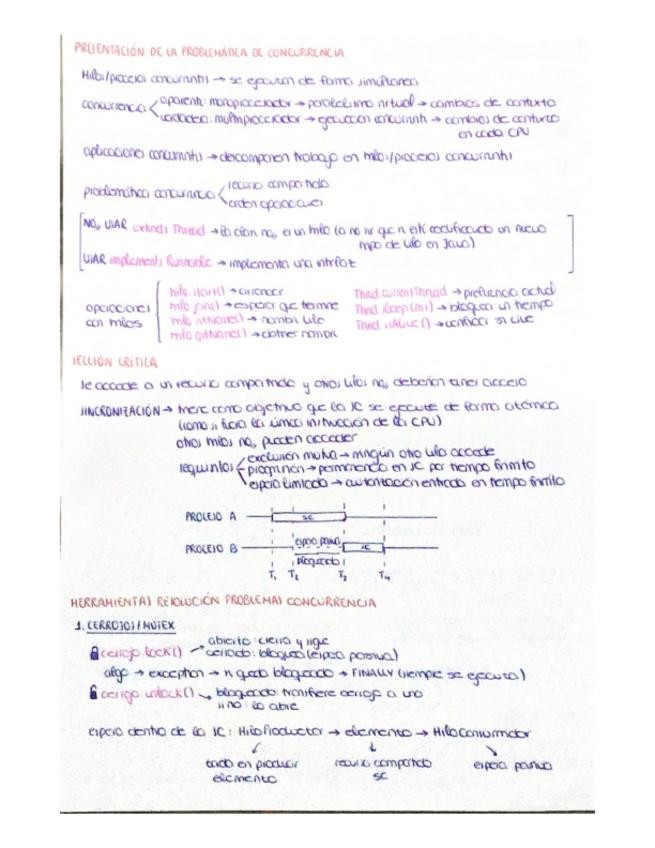 PRESENTACIÓN DE LA PROBLEMÁTICA DE CONCURRENCIA
Hilos/procesos concurrentes → se ejecutan de forma simultánea
concurrencia < aparente: monoprocesador → paralelismo virtual → cambios de contexto
verdadera: multiprocesador → ejecución concurrente → cambios de contexto
en cada CPU
aplicaciones concurrentes → descomponen trabajo en hilos/procesos concurrentes
problemática concurrencia < recurso compartido
orden operaciones
NO USAR extends Thread → la clase no es un hilo (a no ser que se esté codificando un nuevo
tipo de hilo en Java)
USAR implements Runnable → implementa una interfaz
operaciones con hilos
hilo.start() → arrancar
hilo.join() → esperar que termine
hilo.setName() → nombre hilo
hilo.getName() → obtener nombre
Thread.currentThread → referencia actual
Thread.sleep(ms) → bloquea un tiempo
Thread.isAlive() → verificar si vive
SECCIÓN CRÍTICA
se accede a un recurso compartido y otros hilos no deberían tener acceso
SINCRONIZACIÓN → tiene como objetivo que la SC se ejecute de forma atómica
(como si fuera la única instrucción de la CPU)
otros hilos no pueden acceder
requisitos { exclusión mutua → ningún otro hilo accede
progresión → permanencia en SC por tiempo finito
espera limitada → autorización entrada en tiempo finito
PROCESO A SC
PROCESO B espera pasiva SC
bloqueado
T1 T2 T3 T4
HERRAMIENTAS RESOLUCIÓN PROBLEMAS CONCURRENCIA
1. CERROJOS/MUTEX
cerrojo.lock() → abierto: cierra y sigue
cerrado: bloquea (espera pasiva)
algo → exception → n queda bloqueado → FINALLY (siempre se ejecuta)
cerrojo.unlock() → bloqueado: transfiere cerrojo a uno
si no: lo abre
espera dentro de la SC: HiloProductor → elemento → HiloConsumidor
tarda en producir elemento
recurso compartido SC
espera pasiva